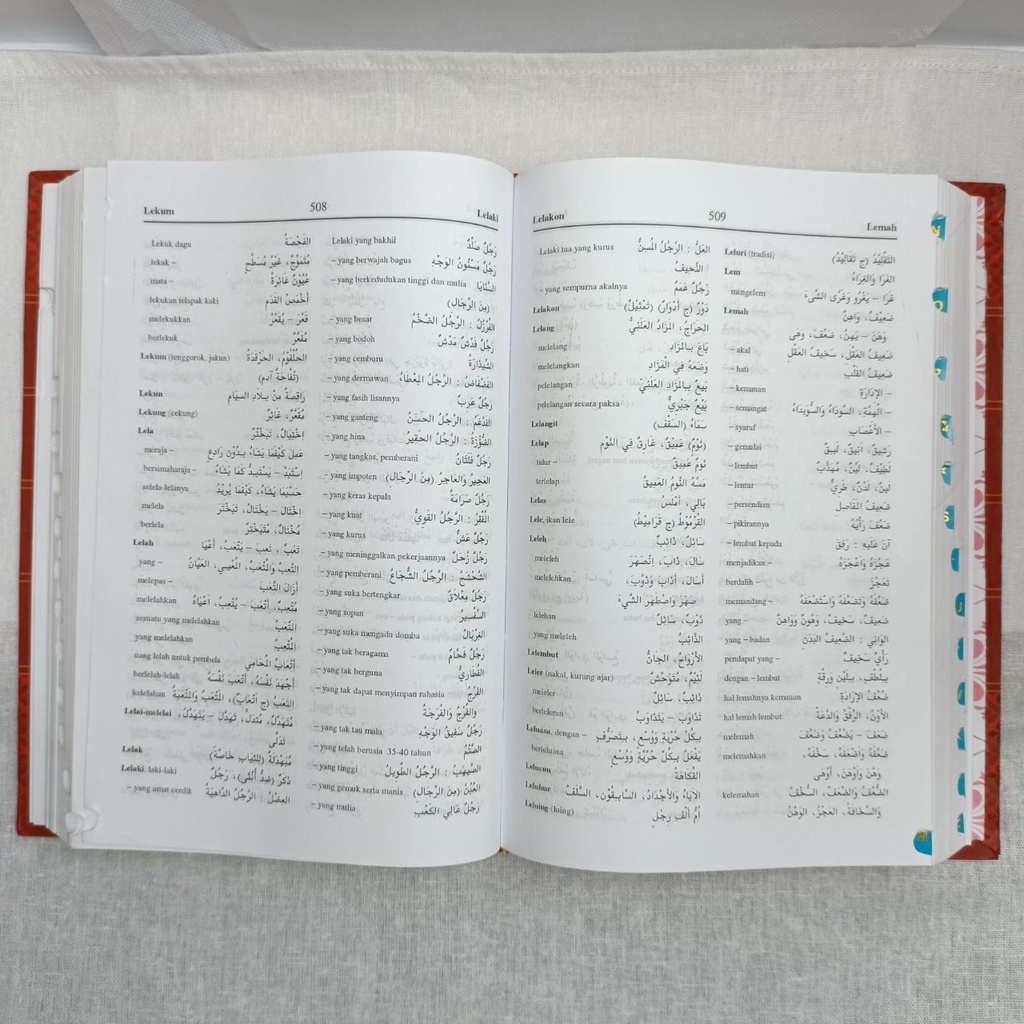 Lekum 508 Lelaki
Lekuk dagu الفَحْصَةُ
lekak – مُتَمَوِّجٌ، غَيْرُ مُسَطَّحٍ
mata – عُيُوْنٌ غَائِرَةٌ
lekukan telapak kaki أَخْمَصُ القَدَمِ
melekukkan قَعَّرَ – يُقَعِّرُ
berlekuk مُقَعَّرٌ
Lekum (tenggorok, jakun) الحُلْقُوْمُ، الحَرْقَدَةُ
(تُفَاحَةُ آدم)
Lekun رَاقِصَةٌ مِنْ بِلَادِ السِيَامِ
Lekung (cekung) مُقَعَّرٌ، غَائِرٌ
Lela اِخْتِيَالٌ، تَبَخْتُرٌ
meraja – عَمِلَ كَيْفَمَا يَشَاءُ بِدُوْنِ رَادِعٍ
bersimaharaja – اِسْتَبَدَّ – يَسْتَبِدُّ كَمَا يَشَاءُ
selela-lelanya حَسْبَمَا يَشَاءُ، كَيْفَمَا يُرِيْدُ
melela اِخْتَالَ – يَخْتَالُ، تَبَخْتَرَ
berlela مُخْتَالٌ، مُتَبَخْتِرٌ
Lelah تَعَبٌ، تَعِبَ – يَتْعَبُ، أَعْيَا
yang – التَّعِبُ وَالمُتْعَبُ، المُعْيِي، العَيَّانُ
melepas – أَزَالَ التَّعَبَ
melelahkan مُتْعِبٌ، أَتْعَبَ – يُتْعِبُ، أَعْيَاهُ
sesuatu yang melelahkan المُتْعِبُ
yang melelahkan المُتْعِبُ
uang lelah untuk pembela أَتْعَابُ المُحَامِي
berlelah-lelah أَجْهَدَ نَفْسَهُ، أَتْعَبَ نَفْسَهُ
kelelahan التَّعَبُ (ج أَتْعَابٌ)، المَتْعَبُ وَالمَتْعَبَةُ
Lelai-melelai مُتَهَدِّلٌ، مُتَدَلٍّ، تَهَدَّلَ – يَتَهَدَّلُ،
تَدَلَّى
Lelak مُبَهْدَلَةٌ (لِلثِيَابِ خَاصَّةً)
Lelaki, laki-laki ذَكَرٌ (ضِدُّ أُنْثَى)، رَجُلٌ
– yang amat cerdik العِضْلُ : الرَّجُلُ الدَّاهِيَةُ
Lelaki yang bakhil رَجُلٌ صَلْدٌ
– yang berwajah bagus رَجُلٌ مَسْنُوْنُ الوَجْهِ
– yang berkedudukan tinggi dan mulia السَّنَايَا
(مِنَ الرِّجَالِ)
– yang besar القُرْزُلُ : الرَّجُلُ الضَّخْمُ
– yang bodoh رَجُلٌ فَدْشٌ مَدْشٌ
– yang cemburu الشَّيْذَارَةُ
– yang dermawan الفَضْفَاضُ : الرَّجُلُ المِعْطَاءُ
– yang fasih lisannya رَجُلٌ عَرِبٌ
– yang ganteng الفَدْغَمُ : الرَّجُلُ الحَسَنُ
– yang hina الرَّجُلُ الحَقِيْرُ
– yang tangkas, pemberani رَجُلٌ فَلْتَانٌ
– yang impoten العَجِيْرُ وَالعَاجِرُ (مِنَ الرِّجَالِ)
– yang keras kepala رَجُلٌ صَرَامَةٌ
– yang kuat الرَّجُلُ القَوِيُّ
– yang kurus رَجُلٌ عَشٌّ
– yang meninggalkan pekerjaannya رَجُلٌ زُحَلٌ
– yang pemberani الرَّجُلُ الشُّجَاعُ
– yang suka bertengkar رَجُلٌ مِعْلَاقٌ
– yang sopan السَّفْسِيْرُ
– yang suka mengadu domba الغِرْبَالُ
– yang tak beragama رَجُلٌ فَحَّامٌ
– yang tak berguna القُطَارِيُّ
– yang tak dapat menyimpan rahasia الفُرُجُ
وَالفُرْجُ وَالفُرَجَةُ
– yang tak tau malu رَجُلٌ سَفِيْقُ الوَجْهِ
– yang telah berusia 35-40 tahun الصُّتُمُّ
– yang tinggi الصَّيْهَبُ : الرَّجُلُ الطَّوِيْلُ
– yang gemuk serta manis (مِنَ الرِّجَالِ)
– yang mulia رَجُلٌ عَالِي الكَعْبِ
Lelakon 509 Lemah
Lelaki tua yang kurus العَلُّ : الرَّجُلُ المُسِنُّ
النَّحِيْفُ
– yang sempurna akalnya رَجُلٌ عَمَمٌ
Lelakon دَوْرٌ (ج أَدْوَارٌ) (تَمْثِيْلٌ)
Lelang الحَرَاجُ، المَزَادُ العَلَنِيُّ
melelang بَاعَ بِالمَزَادِ
melelangkan وَضَعَهُ فِي المَزَادِ
pelelangan بَيْعٌ بِالمَزَادِ العَلَنِيِّ
pelelangan secara paksa بَيْعٌ جَبْرِيٌّ
Lelangit سَمَاءٌ (السَقْفِ)
Lelap (نَوْمٌ) عَمِيْقٌ، غَارِقٌ فِي النَّوْمِ
tidur – نَوْمٌ عَمِيْقٌ
terlelap مَسَّهُ النَّوْمُ العَمِيْقُ
Lelas بَالِي، أَمْلَسُ
Lele, ikan lele القَرْمُوْطُ (ج قَرَامِيْطُ)
Leleh سَائِلٌ، ذَائِبٌ
meleleh سَالَ، ذَابَ، اِنْصَهَرَ
melelehkan أَسَالَ، أَذَابَ وَذَوَّبَ،
صَهَرَ وَاصْطَهَرَ الشَّيْءَ
lelehan ذَوْبٌ، سَائِلٌ
yang meleleh الذَّائِبُ
Lelembut الأَرْوَاحُ، الجَانُّ
Leler (nakal, kurang ajar) لَئِيْمٌ، مُتَوَحِّشٌ
meleler ذَائِبٌ، سَائِلٌ
berleleran تَذَاوَبَ – يَتَذَاوَبُ
Leluasa, dengan – بِكُلِّ حُرِّيَّةٍ وَوُسْعٍ، بِتَصَرُّفٍ
berleluasa يَفْعَلُ بِكُلِّ حُرِّيَّةٍ وَوُسْعٍ
Lelucon الفُكَاهَةُ
Leluhur الآبَاءُ وَالأَجْدَادُ، السَابِقُوْنَ، السَّلَفُ
Leluing (luing) أُمُّ أَلْفِ رِجْلٍ
Leluri (tradisi) التَّقْلِيْدُ (ج تَقَالِيْدُ)
Lem الغَرَا وَالغِرَاءُ
mengelem غَرَا – يَغْرُو وَغَرَّى الشَّيْءَ
Lemah ضَعِيْفٌ، وَاهِنٌ
وَهَنَ – يَهِنُ، ضَعُفَ، وَهَى
– akal ضَعِيْفُ العَقْلِ، سَخِيْفُ العَقْلِ
– hati ضَعِيْفُ القَلْبِ
– kemauan – الإِرَادَةِ
– semangat – الهِمَّةِ، السَّوْدَاءُ وَالسُّوَيْدَاءُ
– syaraf – الأَعْصَابِ
– gemulai رَشِيْقٌ، أَنِيْقٌ، لَبِيْقٌ
– lembut لَطِيْفٌ، لَيِّنٌ، مُهَذَّبٌ
– lentur لَيِّنٌ، لَدْنٌ، طَرِيٌّ
– persendian ضَعِيْفُ المَفَاصِلِ
– pikirannya ضَعُفَ رَأْيُهُ
– lembut kepada آنَ عَلَيْهِ : رَفِقَ
menjadikan – عَجَّزَهُ وَأَعْجَزَهُ
berdalih – تَعَجَّزَ
memandang – ضَعَّفَهُ وَتَضَعَّفَهُ وَاسْتَضْعَفَهُ
yang – ضَعِيْفٌ، سَخِيْفٌ، وَهُوْنٌ وَوَاهِنٌ
yang – badan الوَانِي : الضَّعِيْفُ البَدَنِ
pendapat yang – رَأْيٌ سَخِيْفٌ
dengan – lembut بِلُطْفٍ، بِلِيْنٍ وَرِقَّةٍ
hal lemahnya kemauan ضَعْفُ الإِرَادَةِ
hal lemah lembut الأَوْنُ، الرِّفْقُ وَالدَّعَةُ
melemah ضَعُفَ – يَضْعُفُ وَضَعَفَ
melemahkan ضَعَّفَهُ وَأَضْعَفَهُ، سَخَّفَهُ،
وَهَنَ وَأَوْهَنَ، أَوْهَى
kelemahan الضَّعْفُ وَالضُّعْفُ، السُّخْفُ
وَالسَّخَافَةُ، العَجْزُ، الوَهْنُ